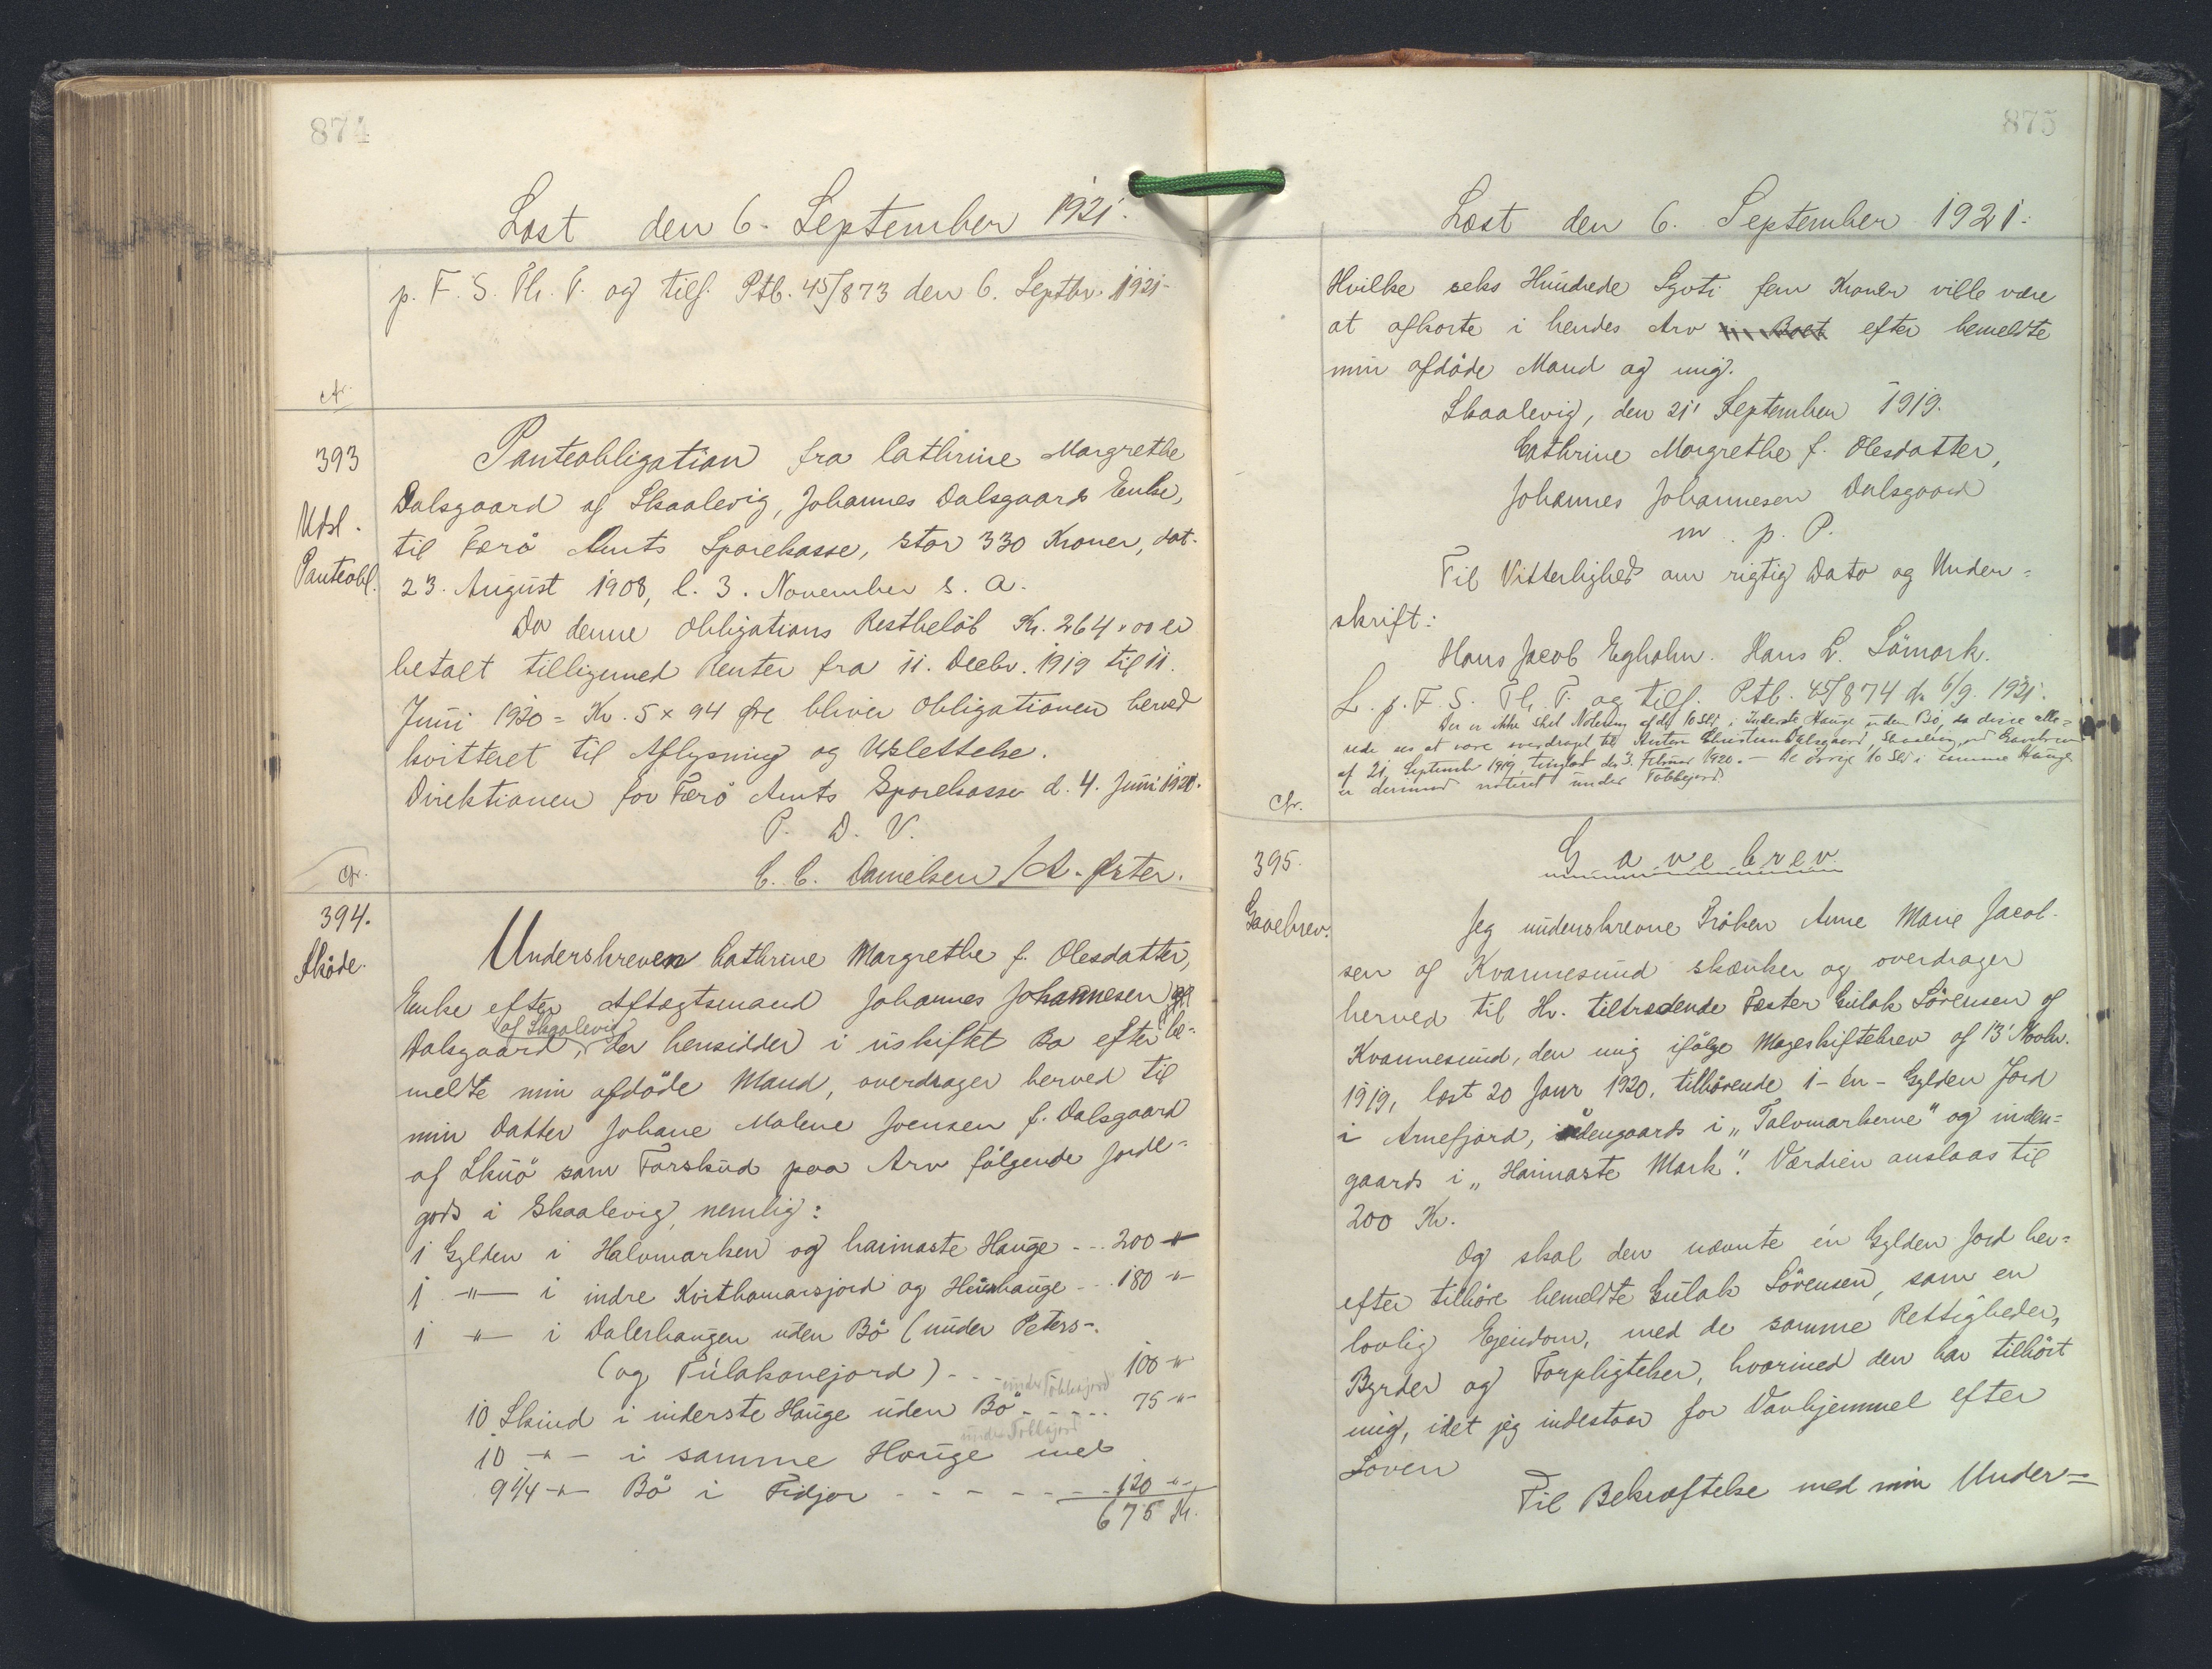 874
Læst den 6. September 1921.
p. F. S. Th. P. og tilf. Ptb. 45/873 den 6. Septbr. 1921-
Cfr.
393
Udsl.
Panteobl.
Panteobligation fra Cathrine Margrethe
Dalsgaard af Skaalevig, Johannes Dalsgaards Enke,
til Færö Amts Sparekasse, stor 330 Kroner, dat.
23. August 1908, l. 3. November s. a.
Da denne Obligations Restbelöb Kr. 264,00 er
betalt tilligemed Renter fra 11. Decbr. 1919 til 11.
Juni 1920 = Kr. 5 x 94 Øre bliver Obligationen herved
kvitteret til Aflysning og Udslettelse.
Direktionen for Færö Amts Sparekasse d. 4. Juni 1921.
P. D. V.
C. C. Danielsen / A. Øster.
Cfr.
394.
Sköde.
Underskreven Cathrine Margrethe f. Olesdatter,
Enke efter Aftægtsmand Johannes Johannesen
af Skaalevig
Dalsgaard, der hensidder i uskiftet Bo efter be-
meldte min afdöde Mand, overdrager herved til
min Datter Johane Malene Joensen f. Dalsgaard
af Skuö som Forskud paa Arv fölgende Jorde-
gods i Skaalevig, nemlig:
1 Gylden i Halvmarken og haimaste Hauge - - . 200 -"-
1 -"- i indre Kvithamarsjord og Heimhauge - - . 180 -"-
1 -"- i Dalerhaugen uden Bö (under Peters-
(og Túlakonejord) - - . 100 -"-
under Tobbajord
10 Skind i inderste Hauge uden Bö - - - - . 75 -"-
under Tobbajord
10 -"- i samme Hauge med
9 1/4 -"- Bö i Fidjor - - - - - - - . 120 -"-
675 Kr.
875
Læst den 6. September 1921.
Hvilke seks Hundrede Syvti fem Kroner ville være
at afkorte i hendes Arv i Boet efter bemeldte
min afdöde Mand og mig.
Skaalevig, den 21' September 1919.
Cathrine Margrethe f. Olesdatter,
Johannes Johannesen Dalsgaard
m. p. P.
Til Vitterlighed om rigtig Dato og Under-
skrift:
Hans Jacob Egholm. Hans L. Sömark.
L. p. F. S. Th. P. og tilf. Ptb. 45/874 d. 6/9. 1921.
Der er ikke sket Notering af de 10 Skd. i Inderste Hauge uden Bö, da disse alle-
rede ses at være overdraget til Anton Christian Dalsgaard, Skaalevig ved Gavebrev
af 21. September 1919, tinglæst den 3. Februar 1920. - De övrige 10 Skd i samme Hauge
er derimod noteret under Tobbejord
Cfr.
395.
Gavebrev.
Gavebrev
Jeg underskrevne Fröken Anne Marie Jacob-
sen af Kvannesund skænker og overdrager
herved til Hr. tiltrædende Fæster Gulak Sörensen af
Kvannesund, den mig ifölge Mageskiftebrev af 13' Novbr.
1919, læst 20 Janr 1920, tilhörende 1 - én - Gylden Jord
i Arnefjord, udengaards i "Talvmarkerne" og inden-
gaards i "Haimaste Mark". Værdien anslaas til
200 Kr.
Og skal den nævnte én Gylden Jord her-
efter tilhöre bemeldte Gulak Sörensen, som en
lovlig Ejendom, med de samme Rettigheder,
Byrder og Forpligtelser, hvormed den har tilhört
mig, idet jeg indestaar for Vanhjemmel efter
Loven
Til Bekræftelse med min Under-